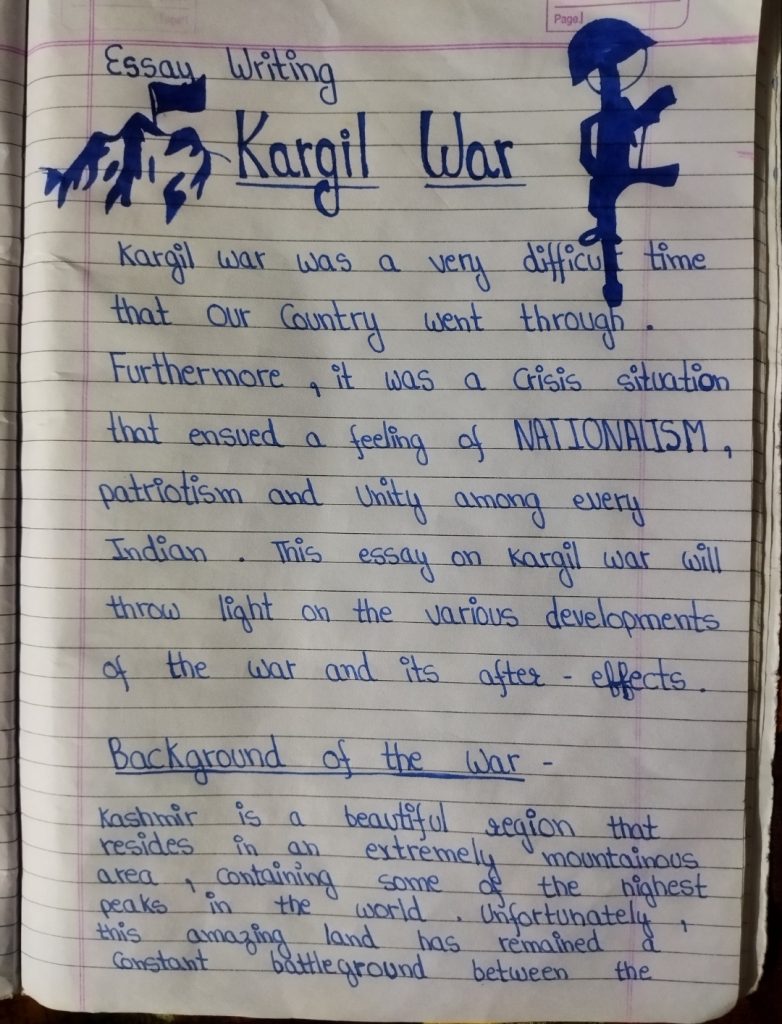 Page:
Essay Writing
Kargil War
Kargil war was a very difficult time
that our Country went through .
Furthermore , it was a Crisis situation
that ensued a feeling of NATIONALISM ,
patriotism and Unity among every
Indian . This essay on Kargil war will
throw light on the various developments
of the war and its after - effects .
Background of the War -
Kashmir is a beautiful region that
resides in an extremely mountainous
area , Containing some of the highest
peaks in the world . Unfortunately ,
this amazing land has remained a
Constant battleground between the